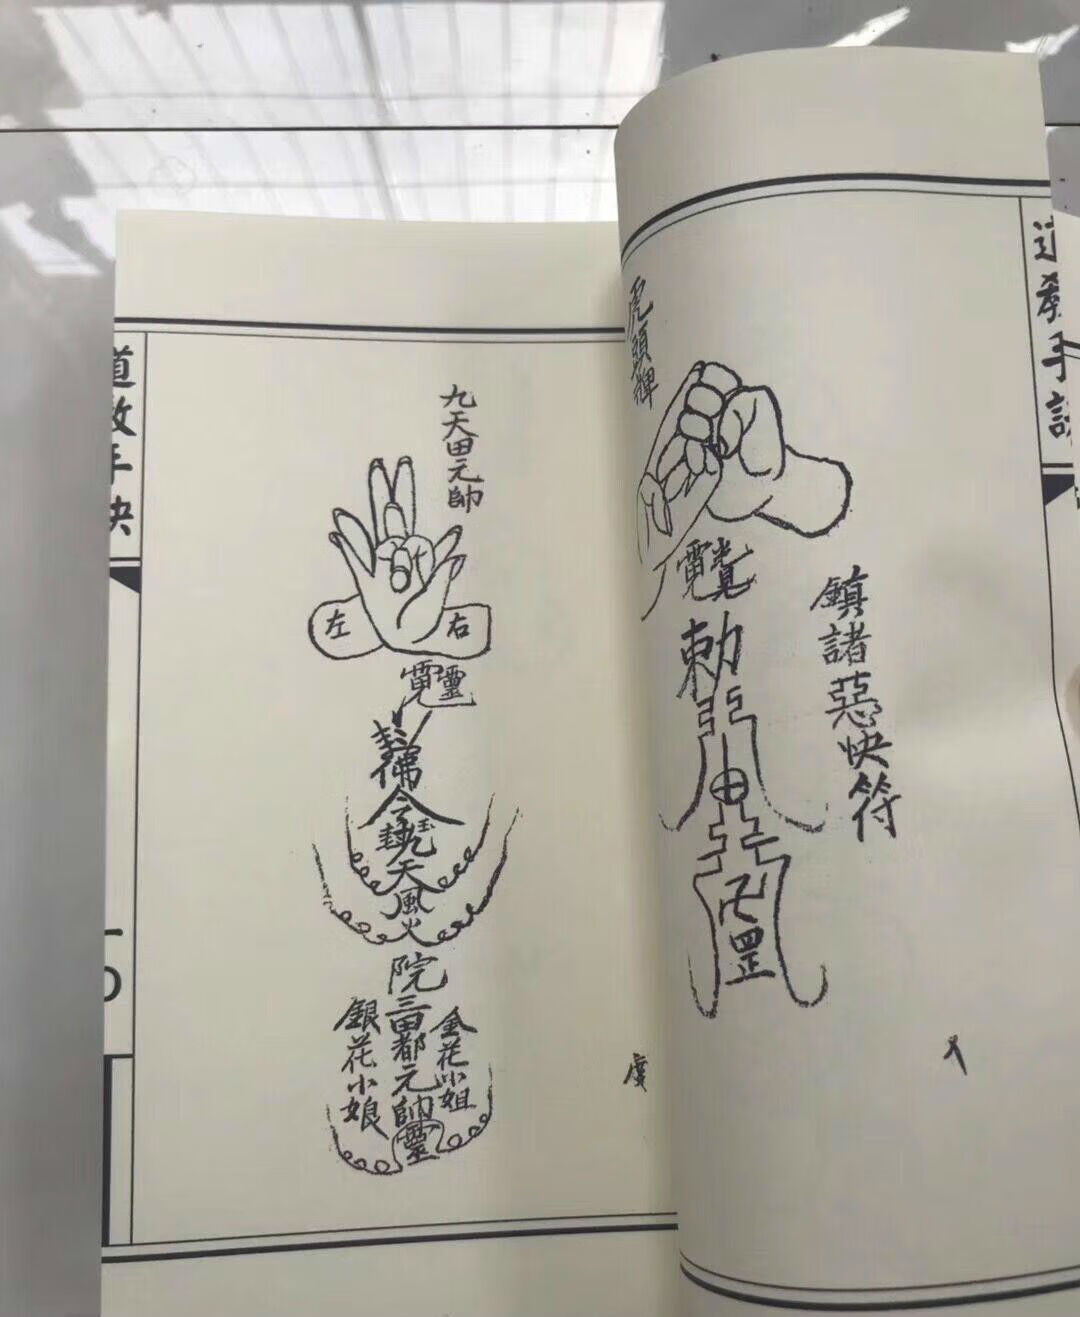 道教手訣
虎頭牌
鎮諸惡快符
勅
卍
罡
九天田元帥
左
右
佛
令
天
風火
院三田都元帥靈
金花小姐
銀花小娘
道教手訣
一〇